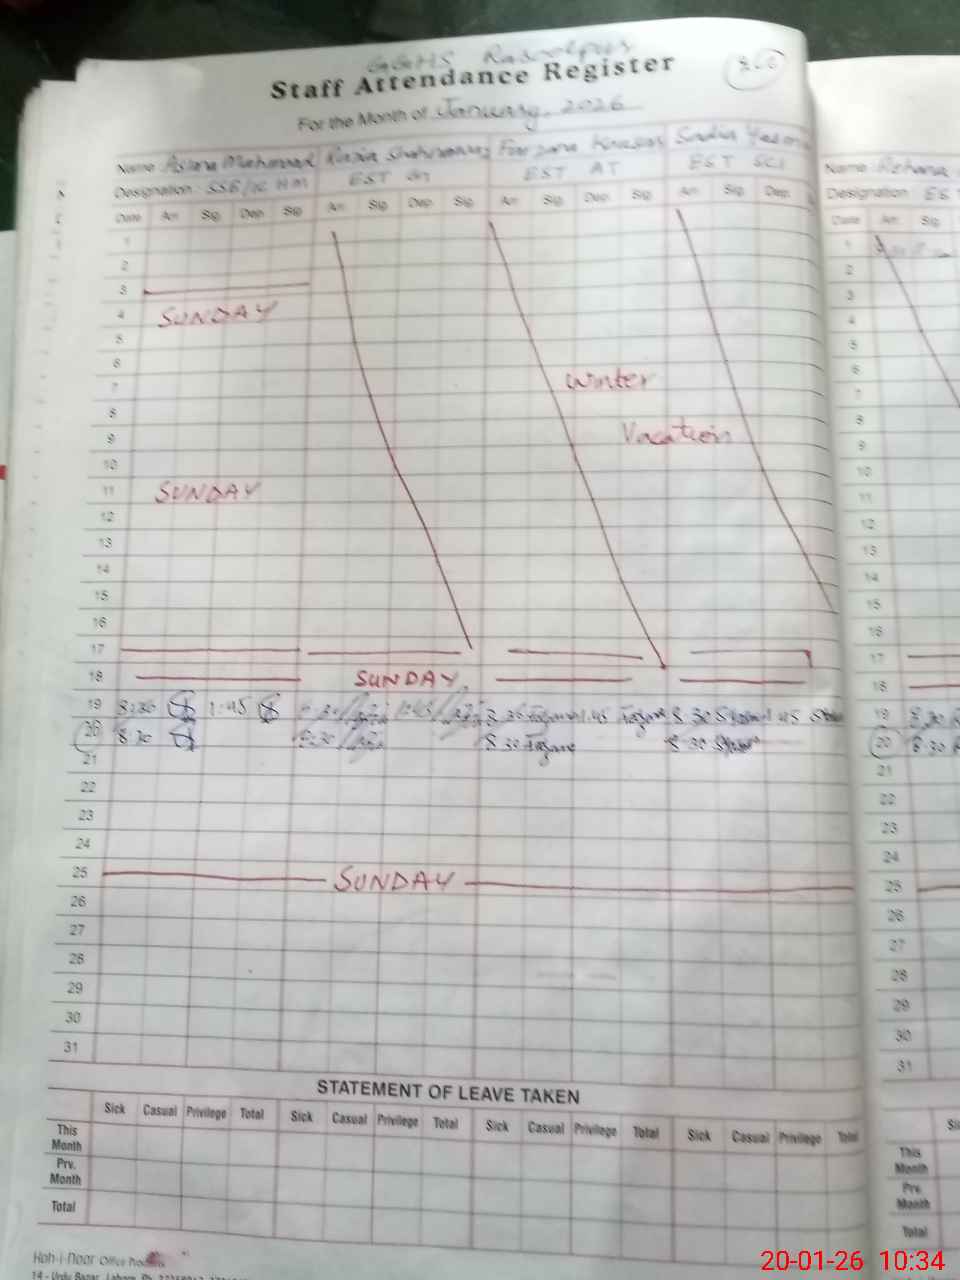 GGHS Rasoolpur
Staff Attendance Register
For the Month of January, 2026
Name Aslma Mehmood Razia Shahnawaz Farzana Kausar Sadia Yasmin
Designation SSE/IC HM EST EST AT EST SCI
Date Arr. Sig. Dep. Sig. Arr. Sig. Dep. Sig. Arr. Sig. Dep. Sig. Arr. Sig. Dep.
1
2
3
4 SUNDAY
5
6
7 Winter
8
9 Vacation
10
11 SUNDAY
12
13
14
15
16
17
18 SUNDAY
19 8:30 1:45 8:30 1:45 8.30 1.45 8.30 1 45
20 8:30 8:30 8.30 8.30
21
22
23
24
25 SUNDAY
26
27
28
29
30
31
STATEMENT OF LEAVE TAKEN
Sick Casual Privilege Total Sick Casual Privilege Total Sick Casual Privilege Total Sick Casual Privilege Total
This Month
Prv. Month
Total
Koh-i-Noor Office
14 - Urdu Bazar, Lahore. Ph.
Name Rehana
Designation
Date Arr. Sig.
1
2
3
4
5
6
7
8
9
10
11
12
13
14
15
16
17
18
19 8.30
20 8.30
21
22
23
24
25
26
27
28
29
30
31
This Month
Prv. Month
Total
20-01-26 10:34